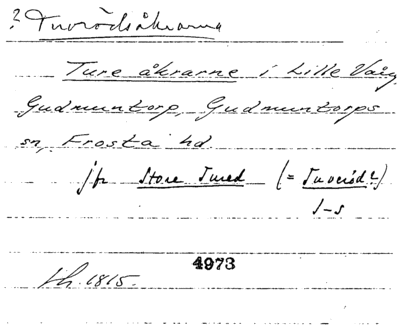 ? Tuvrödsåkrarna
Ture åkrarne i Lilla Väg,
Gudmuntorp, Gudmuntorps
sn, Frosta hd
jfr Store Tured (= Tuveröd?)
S-s
4973
Lh. 1815.